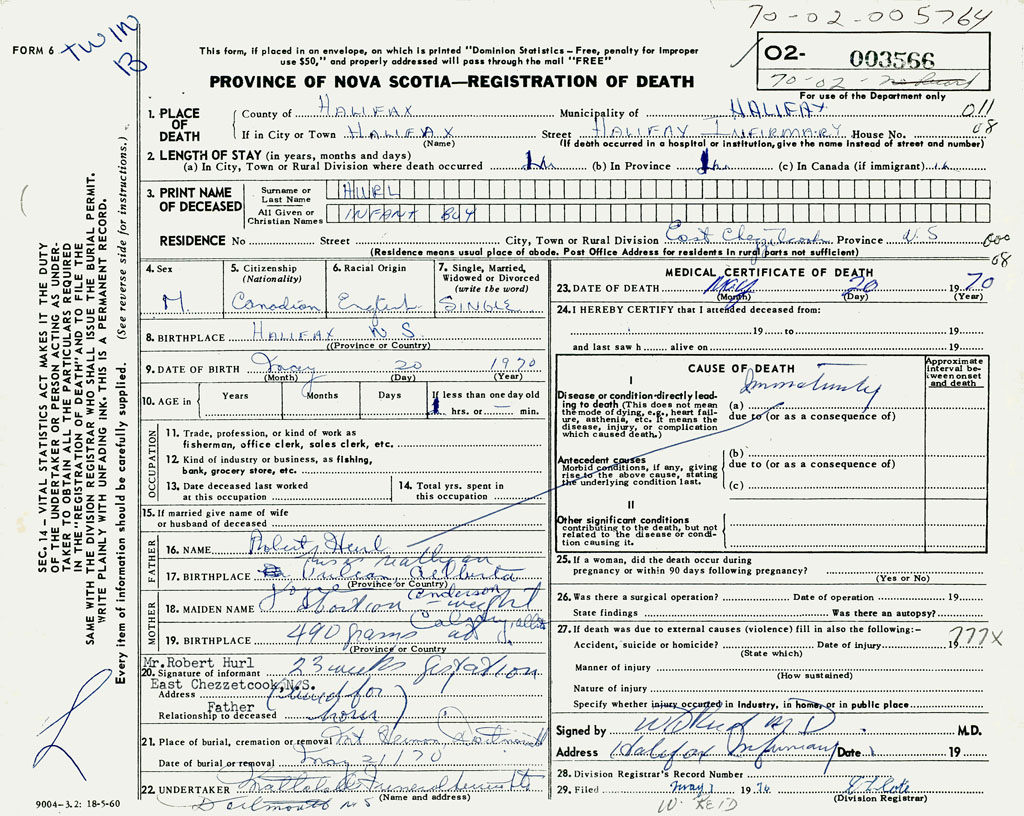 70-02-005764
FORM 6
TWIN
B
This form, if placed in an envelope, on which is printed "Dominion Statistics – Free, penalty for improper
use $50," and properly addressed will pass through the mail "FREE"
PROVINCE OF NOVA SCOTIA—REGISTRATION OF DEATH
02- 003566
70-02-
For use of the Department only
1. PLACE OF DEATH
County of HALIFAX Municipality of HALIFAX 011
If in City or Town HALIFAX Street HALIFAX INFIRMARY House No. 08
(Name) (If death occurred in a hospital or institution, give the name instead of street and number)
2. LENGTH OF STAY (in years, months and days)
(a) In City, Town or Rural Division where death occurred 1 hr (b) In Province 1 hr (c) In Canada (if immigrant)
3. PRINT NAME OF DECEASED
Surname or Last Name HURL
All Given or Christian Names INFANT BOY
RESIDENCE No Street City, Town or Rural Division East Chezzetcook Province N.S
(Residence means usual place of abode. Post Office Address for residents in rural parts not sufficient)
08
4. Sex
M.
5. Citizenship
(Nationality)
Canadian
6. Racial Origin
English
7. Single, Married,
Widowed or Divorced
(write the word)
SINGLE
8. BIRTHPLACE HALIFAX N.S.
((Province or Country)
9. DATE OF BIRTH May 20 1970
(Month) (Day) (Year)
10. AGE in
Years Months Days If less than one day old
1 hrs. or — min.
OCCUPATION
11. Trade, profession, or kind of work as
fisherman, office clerk, sales clerk, etc.
12. Kind of industry or business, as fishing,
bank, grocery store, etc.
13. Date deceased last worked
at this occupation
14. Total yrs. spent in
this occupation
15. If married give name of wife
or husband of deceased
FATHER
16. NAME Robert Hurl
17. BIRTHPLACE Vulcan Alberta
(Province or Country)
MOTHER
18. MAIDEN NAME Joyce Anderson
abortion - weight
19. BIRTHPLACE Calgary, Alberta
490 grams at
(Province or Country
Mr. Robert Hurl
20. Signature of informant 23 weeks gestation
East Chezzetcook, N.S.
Address (lived for
Father
Relationship to deceased hour)
21. Place of burial, cremation or removal Mt Hermon Dartmouth
Date of burial or removal May 21/70
22. UNDERTAKER
(Name and address)
Dartmouth N S
9004-3.2: 18-5-60
MEDICAL CERTIFICATE OF DEATH
23. DATE OF DEATH May 20 1970
(Month) (Day) (Year)
24. I HEREBY CERTIFY that I attended deceased from:
19 to 19
and last saw h alive on 19
CAUSE OF DEATH
Approximate interval between onset and death
I
Disease or condition directly leading to death (This does not mean the mode of dying, e.g., heart failure, asthenia, etc. It means the disease, injury, or complication which caused death.)
(a) Immaturity
due to (or as a consequence of)
Antecedent causes
Morbid conditions, if any, giving rise to the above cause, stating the underlying condition last.
(b)
due to (or as a consequence of)
(c)
II
Other significant conditions
contributing to the death, but not
related to the disease or condition causing it.
25. If a woman, did the death occur during
pregnancy or within 90 days following pregnancy?
(Yes or No)
26. Was there a surgical operation? Date of operation 19
State findings Was there an autopsy?
27. If death was due to external causes (violence) fill in also the following:–
Accident, suicide or homicide? Date of injury 19 777X
(State which)
Manner of injury
(How sustained)
Nature of injury
Specify whether injury occurred in Industry, in home, or in public place
Signed by M.D.
Address Halifax Infirmary Date 19
28. Division Registrar's Record Number
29. Filed May 1970
(Division Registrar)
W. REID
SEC. 14 – VITAL STATISTICS ACT MAKES IT THE DUTY
OF THE UNDERTAKER OR PERSON ACTING AS UNDER-
TAKER TO OBTAIN ALL THE PARTICULARS REQUIRED
IN THE "REGISTRATION OF DEATH" AND TO FILE THE
SAME WITH THE DIVISION REGISTRAR WHO SHALL ISSUE THE BURIAL PERMIT.
WRITE PLAINLY WITH UNFADING INK. THIS IS A PERMANENT RECORD.
Every item of information should be carefully supplied. (See reverse side for instructions.)